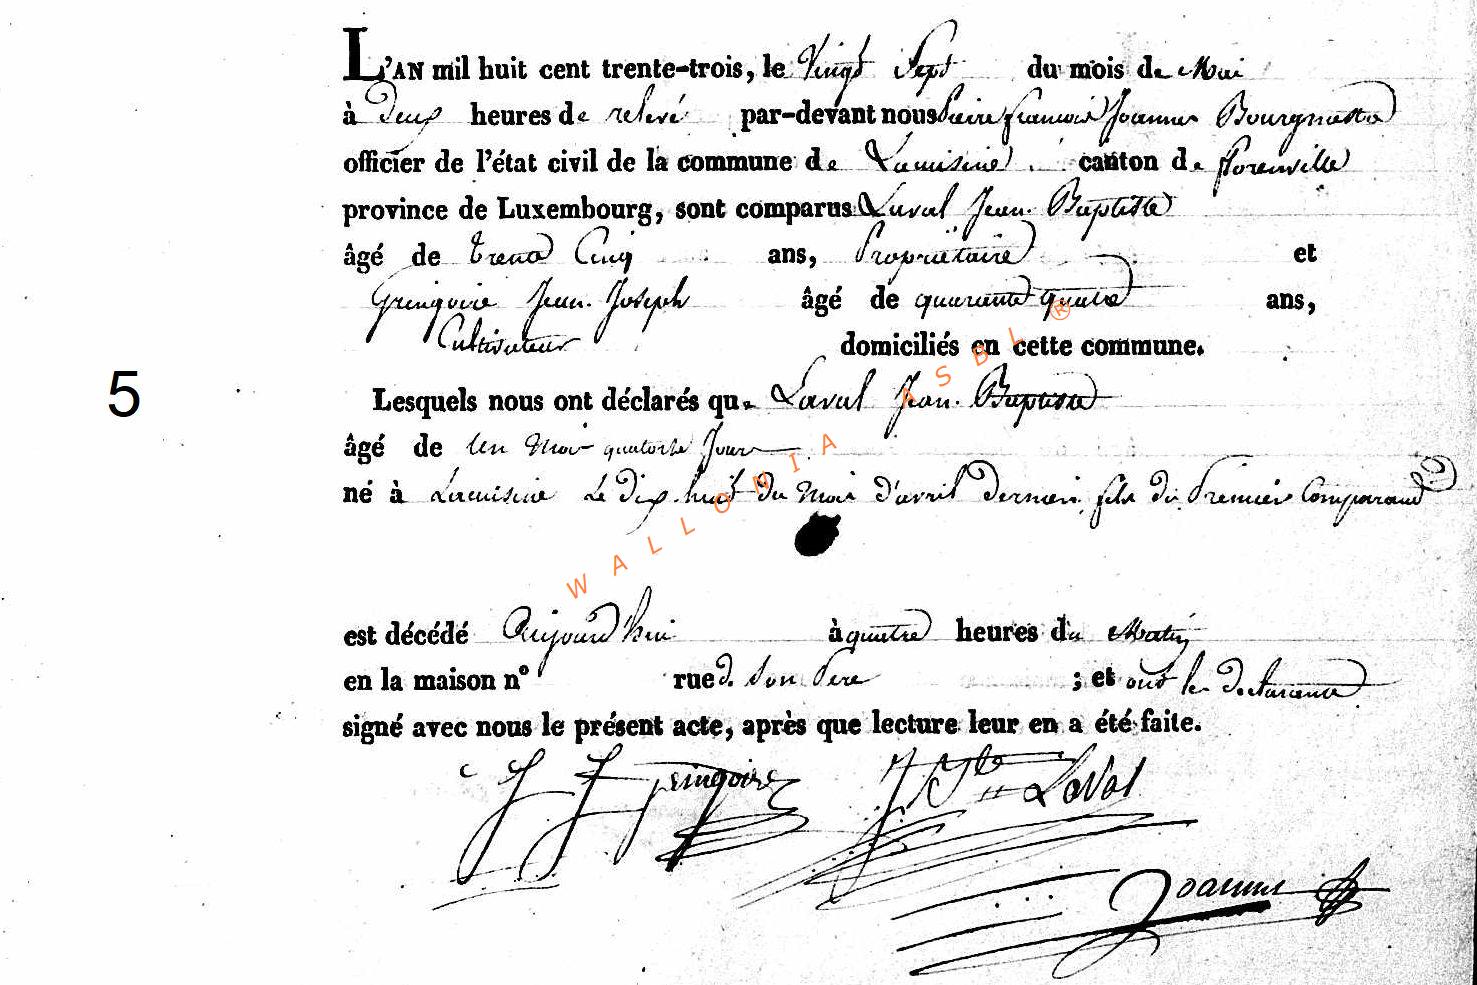 L'AN mil huit cent trente-trois, le Vingt Sept du mois de Mai
à Deux heures de relevé par-devant nous Pierre francois Joannes Bourgmestre
officier de l'état civil de la commune de Lacuisine canton de florenville
province de Luxembourg, sont comparus Laval Jean Baptiste
âgé de trente Cinq ans, Propriétaire et
Gringoire Jean Joseph âgé de quarante quatre ans,
Cultivateur domiciliés en cette commune.
5
Lesquels nous ont déclarés que Laval Jean Baptiste
âgé de un Mois quatorze Jours
né à Lacuisine Le dix huit du Mois d'avril Dernier, fils du Premier Comparant
est décédé Aujourd'hui à quatre heures du Matin
en la maison n° rue de Son Père ; et ont les declarants
signé avec nous le présent acte, après que lecture leur en a été faite.
J J gringoire J Bte Laval
Joannes
WALLONIA ASBL ®